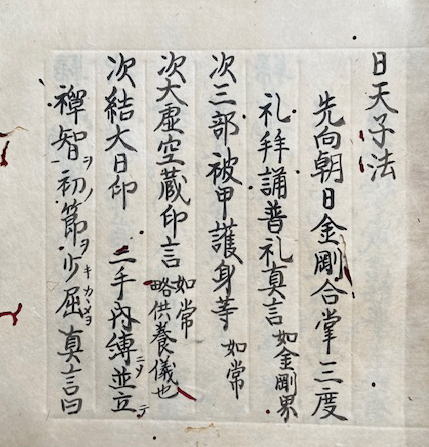 日天子法
先向朝日金剛合掌三度
礼拜誦普礼真言如金剛界
次三部被甲護身等如常
次大虚空蔵印言如常略供養儀也
次結大日印 二手内縛並立テ
禪智ヲ初ノ節ヲ少屈真言曰